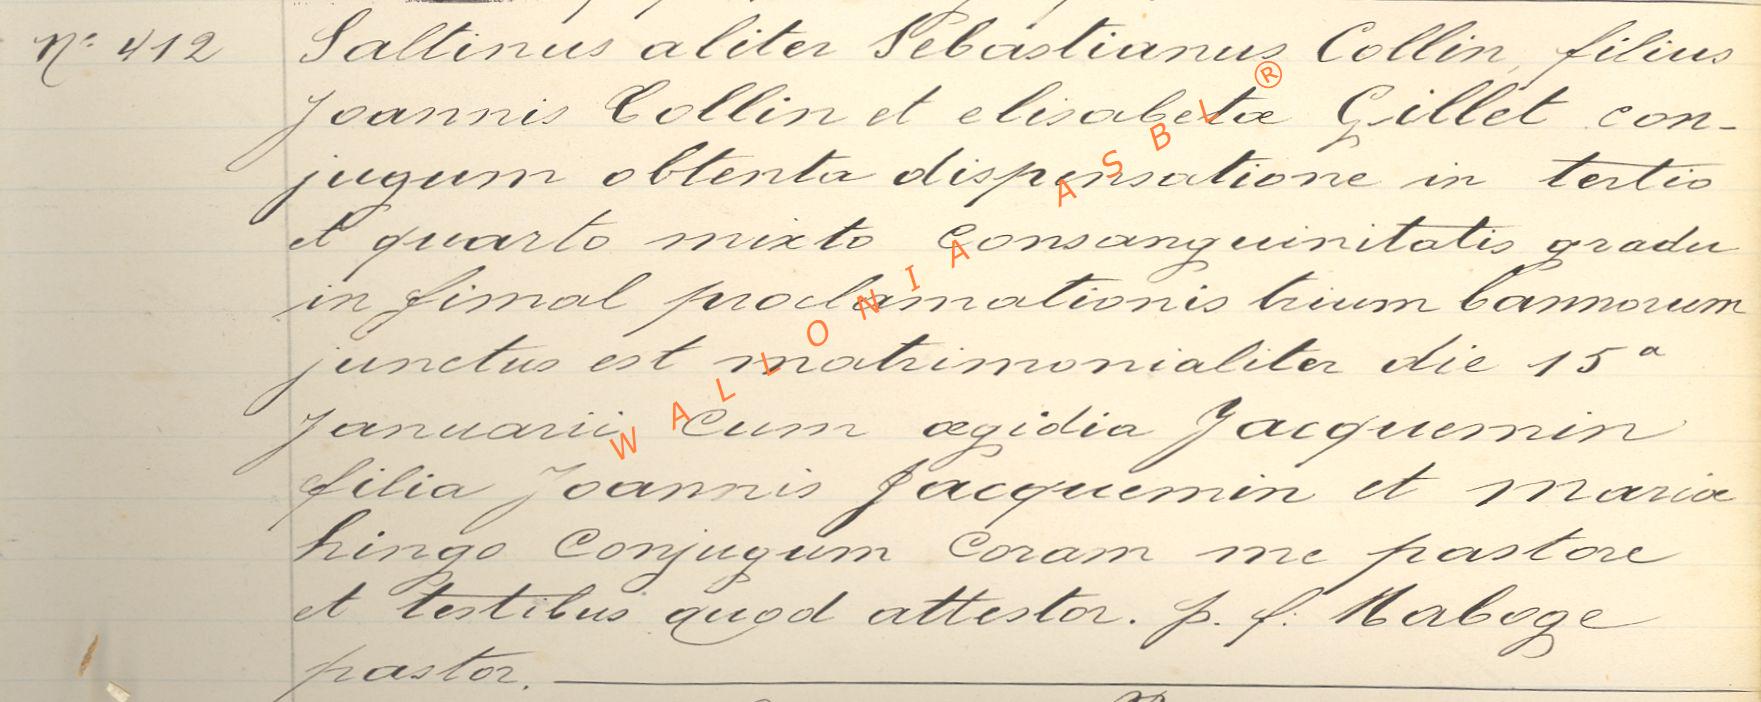 Nº 412 Saltinus aliter Sebastianus Collin, filius
Joannis Collin et elisabetæ Gillet con-
jugum obtenta dispensatione in tertio
et quarto mixto Consanguinitatis gradu
in fimal proclamationis trium bannorum
junctus est matrimonialiter die 15ª
Januarii Cum ægidia Jacquemin
filia Joannis Jacquemin et mariæ
hingo Conjugum Coram me pastore
et testibus quod attestor. p. f. Naboge
pastor.
WALLONIA ASBL ®